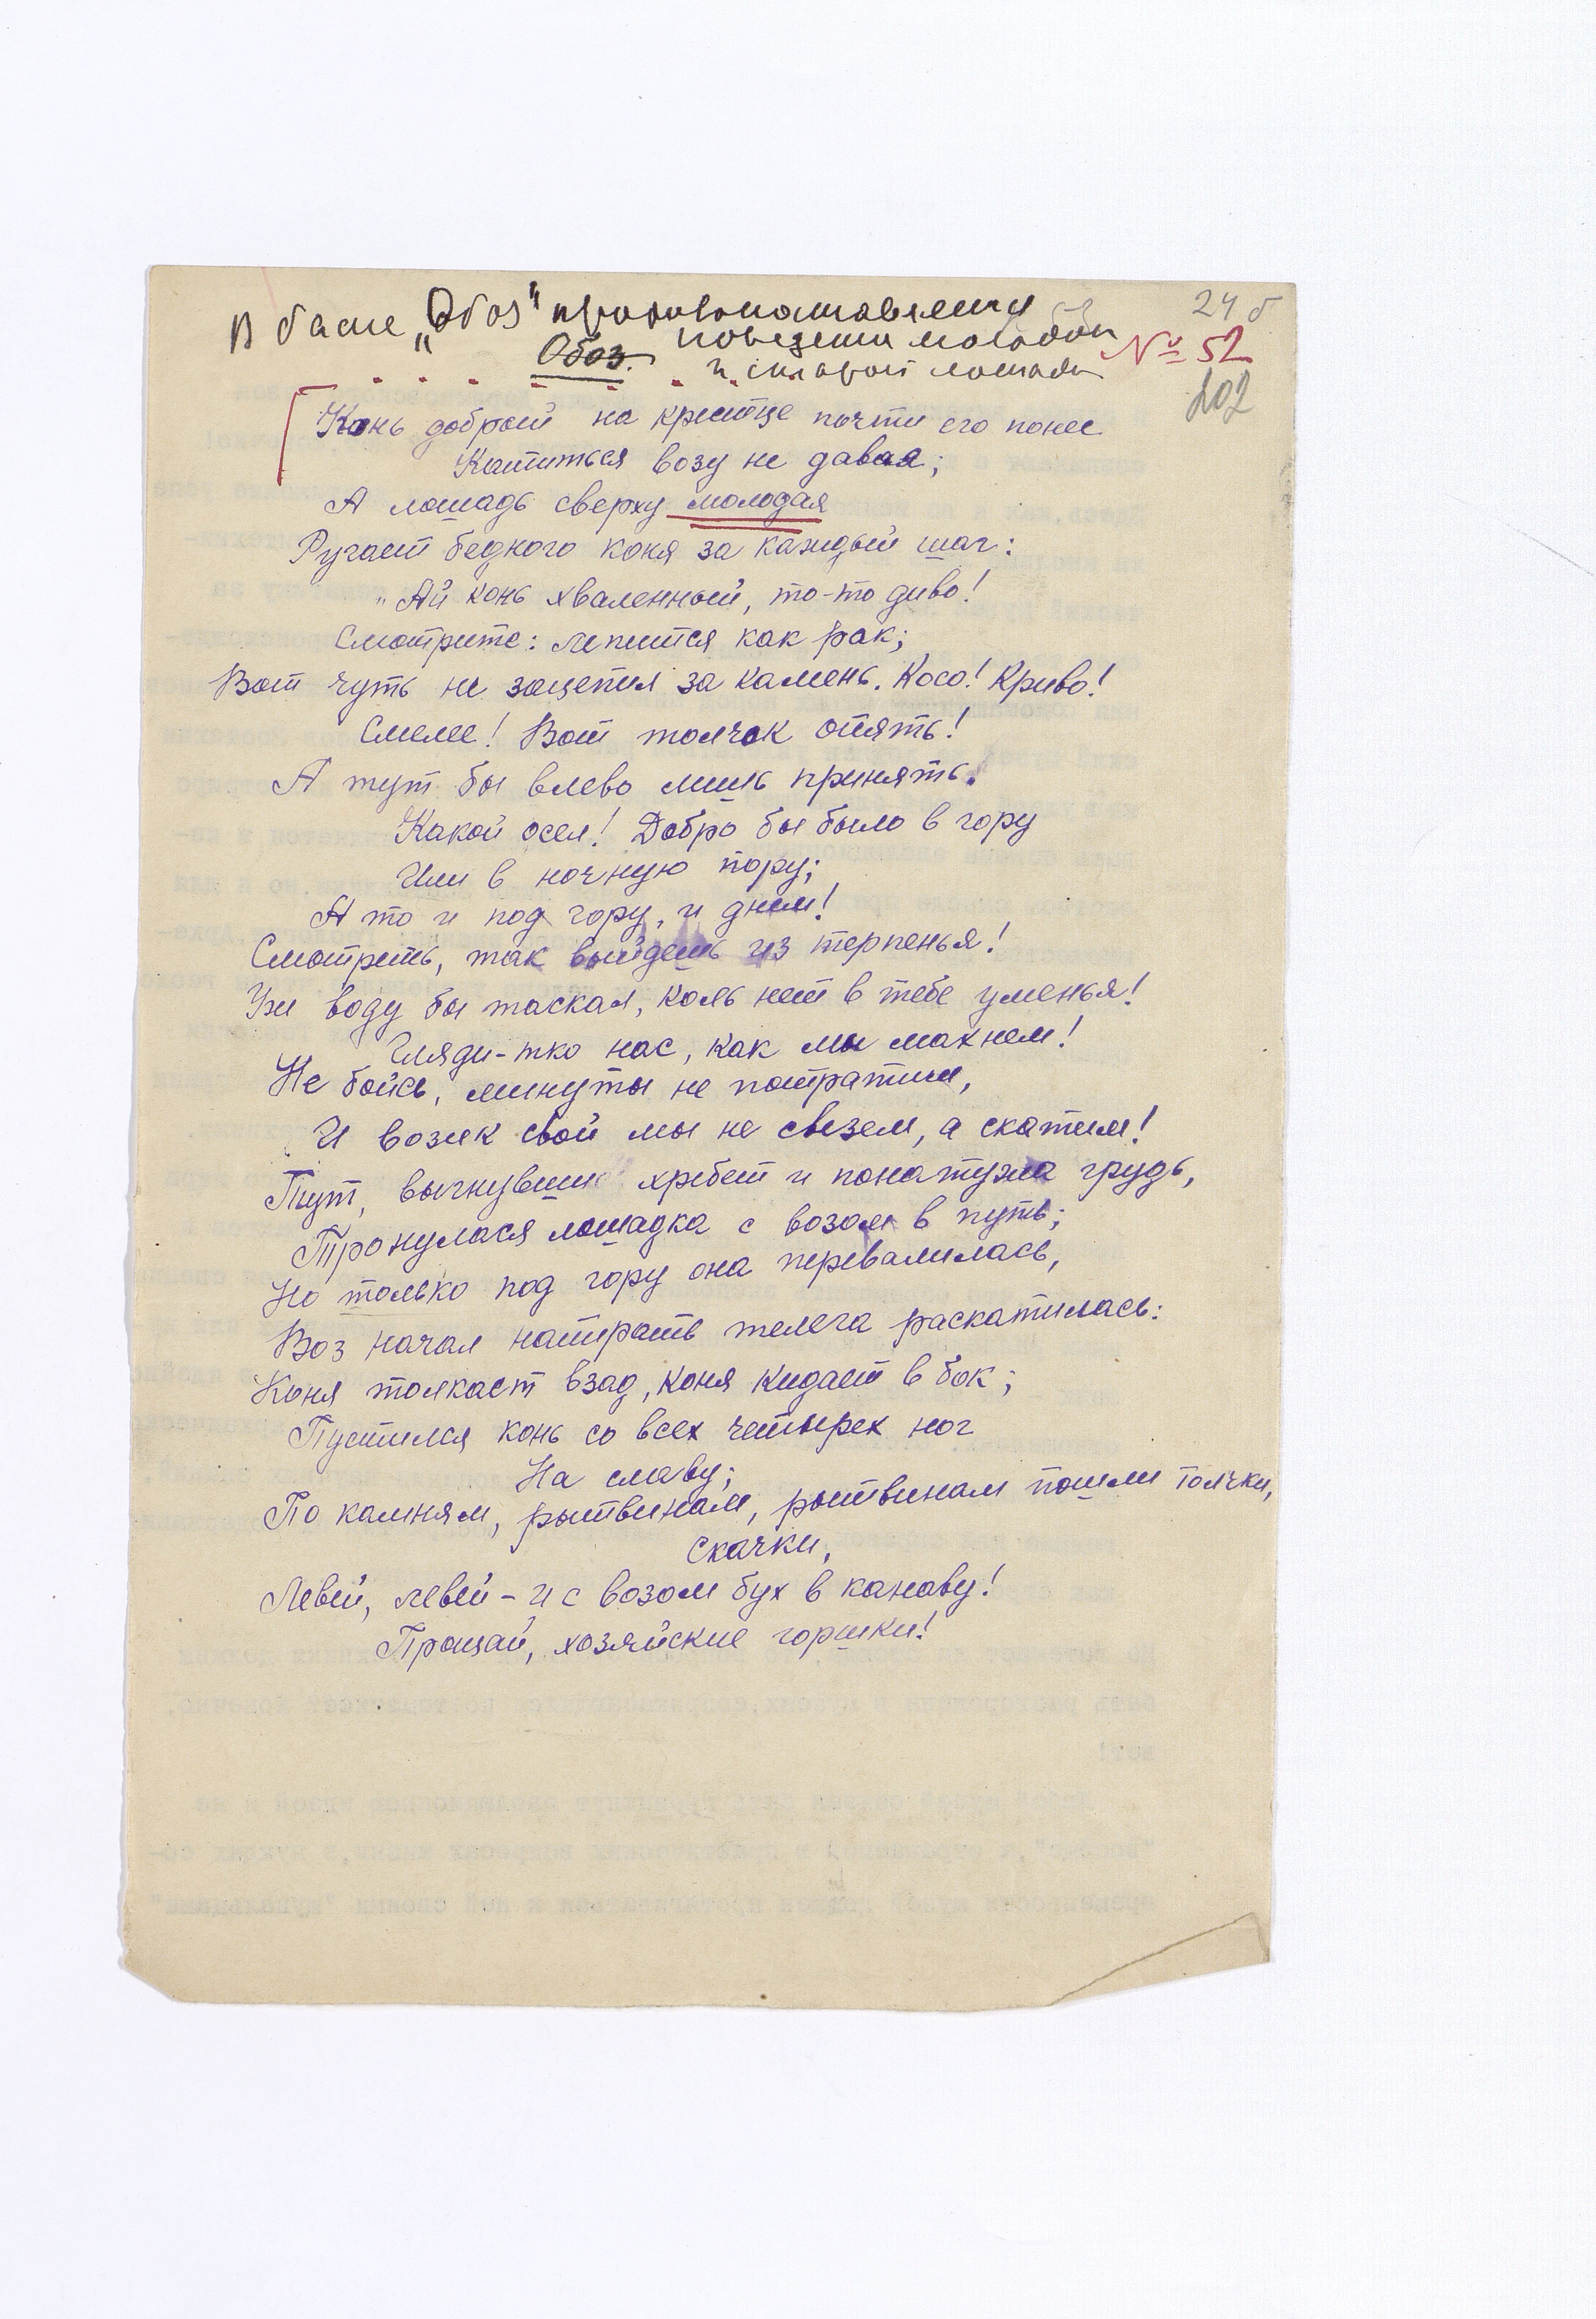 В басне „Обоз" противопоставляется
поведение молодой
и старой лошади
24 б
№ 52
202
Обоз.
Конь добрый на крестце почти его понес
Катиться возу не давая;
А лошадь сверху молодая
Ругает бедного коня за каждый шаг:
„Ай конь хваленный, то-то диво!
Смотрите: лепится как рак;
Вот чуть не зацепил за камень. Косо! Криво!
Смелее! Вот толчок опять!
А тут бы влево лишь принять.
Какой осел! Добро бы было в гору
Или в ночную пору;
А то и под гору, и днем!
Смотреть, так выйдешь из терпенья!
Уж воду бы таскал, коль нет в тебе уменья!
Гляди-тко нас, как мы махнем!
Не бойсь, минуты не потратим,
И возик свой мы не свезем, а скатим!
Тут, выгнувши хребет и понатужа грудь,
Тронулася лошадка с возом в путь;
Но только под гору она перевалилась,
Воз начал напирать телега раскатилась:
Коня толкает взад, коня кидает в бок;
Пустился конь со всех четырех ног
На славу;
По камням, рытвинам, рытвинам пошли толчки,
Скачки,
Левей, левей - и с возом бух в канаву!
Прощай, хозяйские горшки!